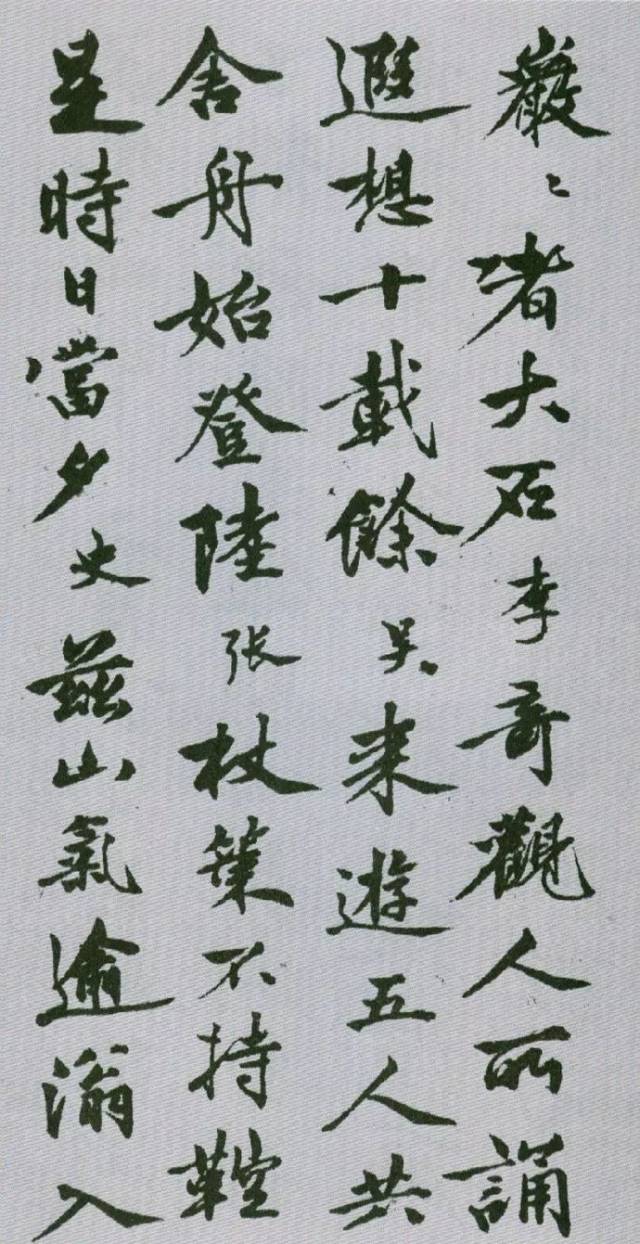 巖〻者大石李奇觀人所誦
遐想十載餘吴来遊五人共
舍舟始登陸张杖策不持鞚
是時日當夕史茲山氣逾滃入